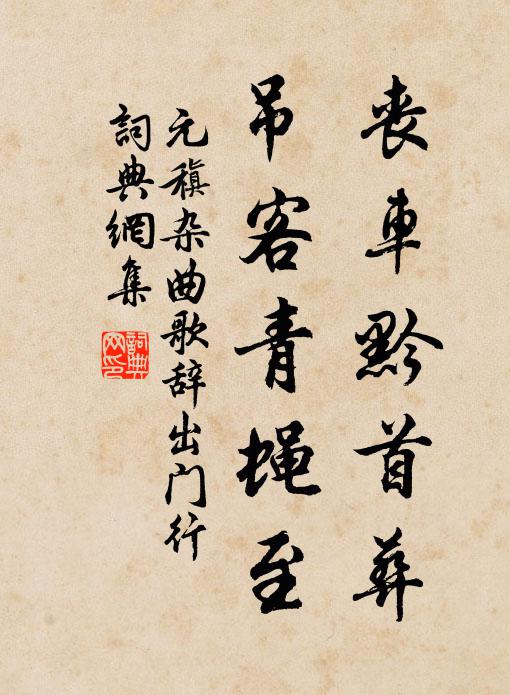 喪車黔首葬
吊客青蝇至
元稹杂曲歌辞出门行
詞典網集
詞典
网印